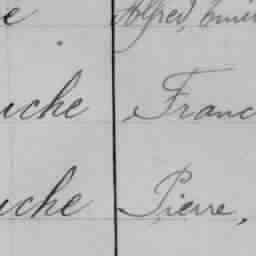 e Alfred, Emil
uche Franc
uche Pierre,